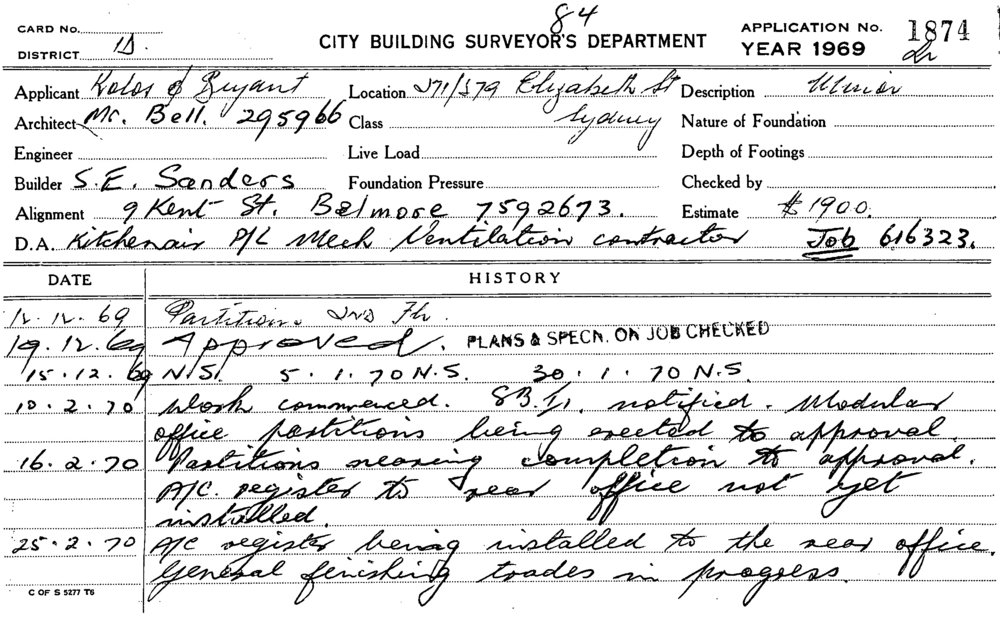 84
CARD No.
CITY BUILDING SURVEYOR'S DEPARTMENT
APPLICATION No. 1874
DISTRICT 1D.
YEAR 1969
Applicant Kolos & Bryant Location 371/379 Elizabeth St Description Minor
Architect Mc. Bell. 295966 Class Sydney Nature of Foundation
Engineer Live Load Depth of Footings
Builder S.E. Sanders Foundation Pressure Checked by
Alignment 9 Kent St. Belmore 7592673. Estimate $1900.
D.A. Kitchenair P/L Mech Ventilation contractor Job 616323.
DATE HISTORY
12.12.69 Partitions 2nd Flr.
19.12.69 Approved. PLANS & SPECN. ON JOB CHECKED
15.12.69 N.S. 5.1.70 N.S. 30.1.70 N.S.
10.2.70 Work commenced. notified. Modular
office partitions being erected to approval.
16.2.70 Partitions nearing completion to approval.
A/C. register to rear office not yet
installed.
25.2.70 A/C register being installed to the rear office.
General finishing trades in progress.
C OF S 5277 T6